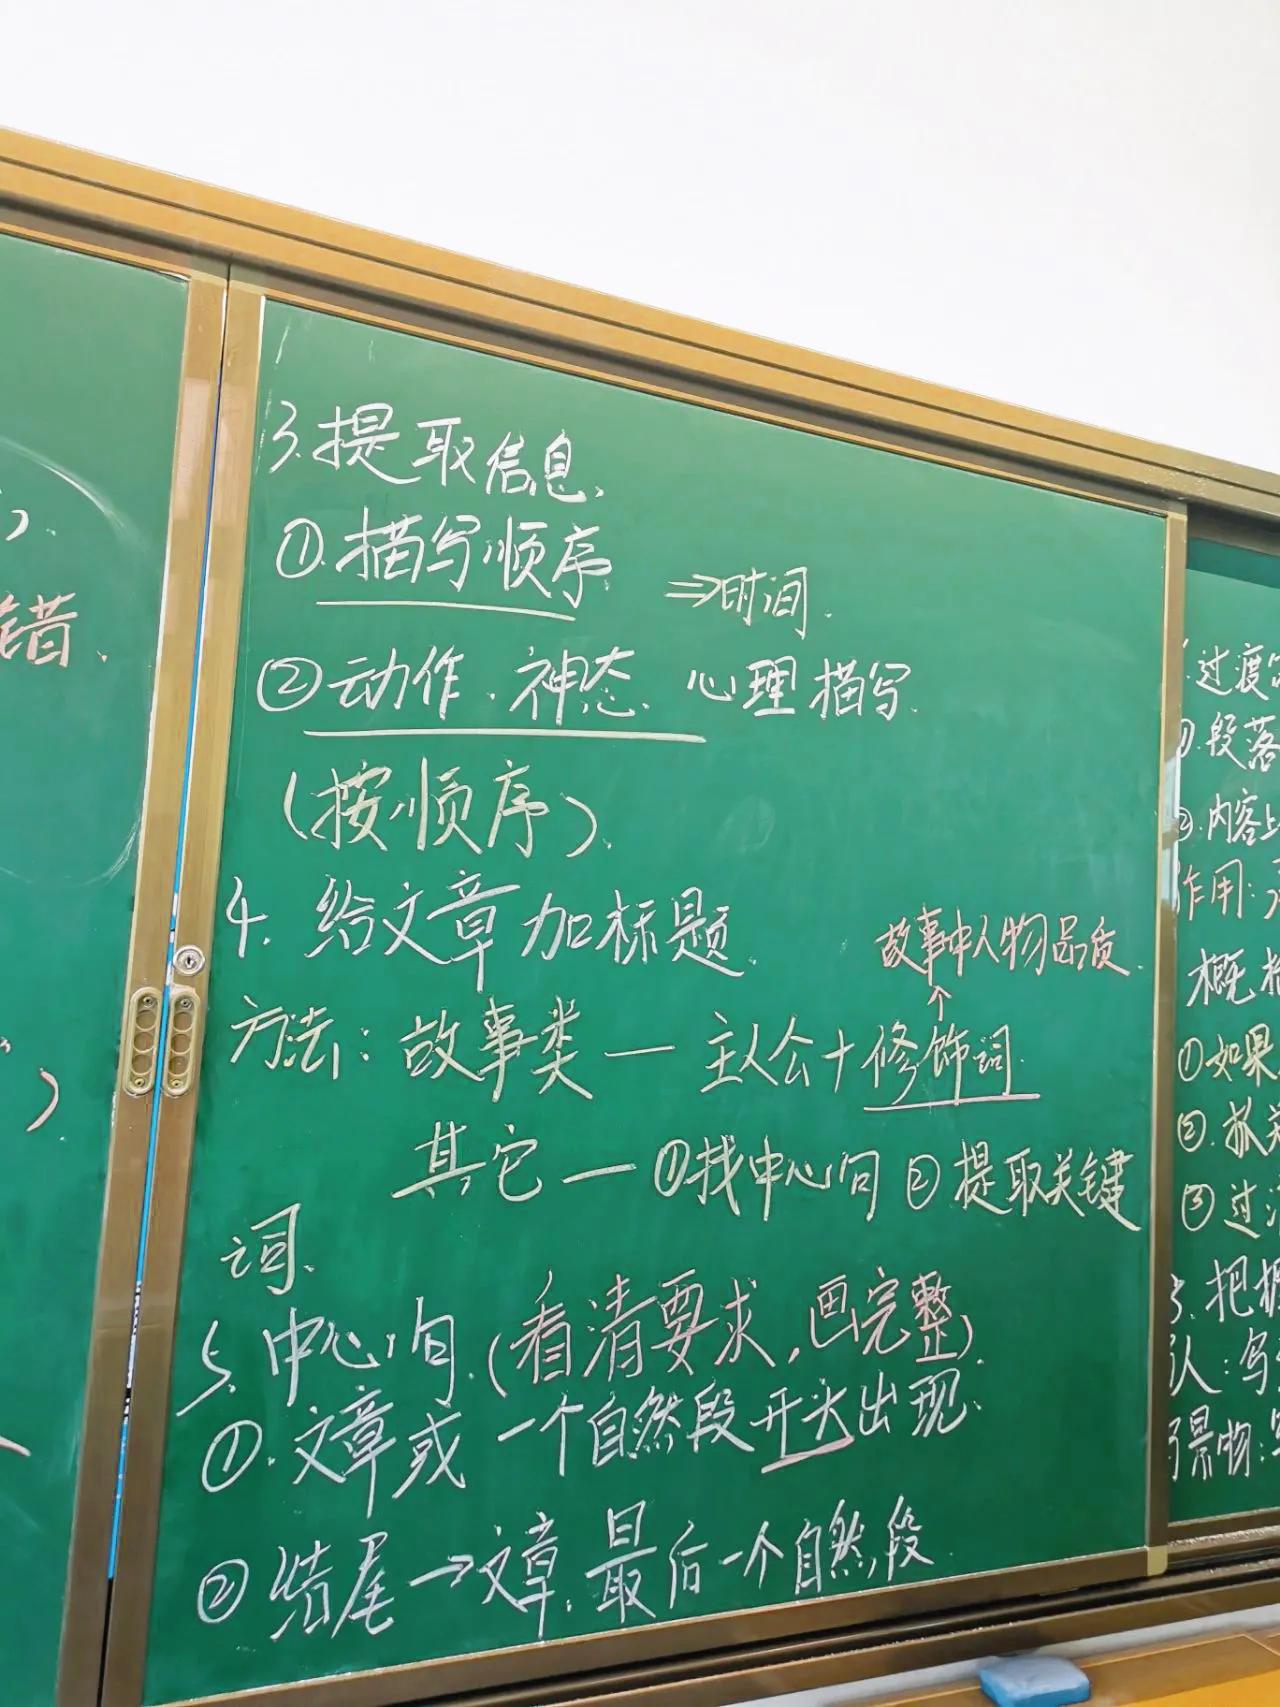 错.
3.提取信息.
①.描写顺序 ⇒时间.
②动作.神态. 心理描写.
(按顺序).
4. 给文章加标题.
故事中人物品质.
↑
方法：故事类 — 主人公+修饰词
其它 — ①找中心句 ②提取关键
词.
5. 中心句.(看清要求,画完整).
①.文章或一个自然段开头出现.
②结尾→文章.最后一个自然段
过渡
①.段落
②.内容上
作用:
概括
①如果
②.抓关
③过
3.把握
人:写
景物: